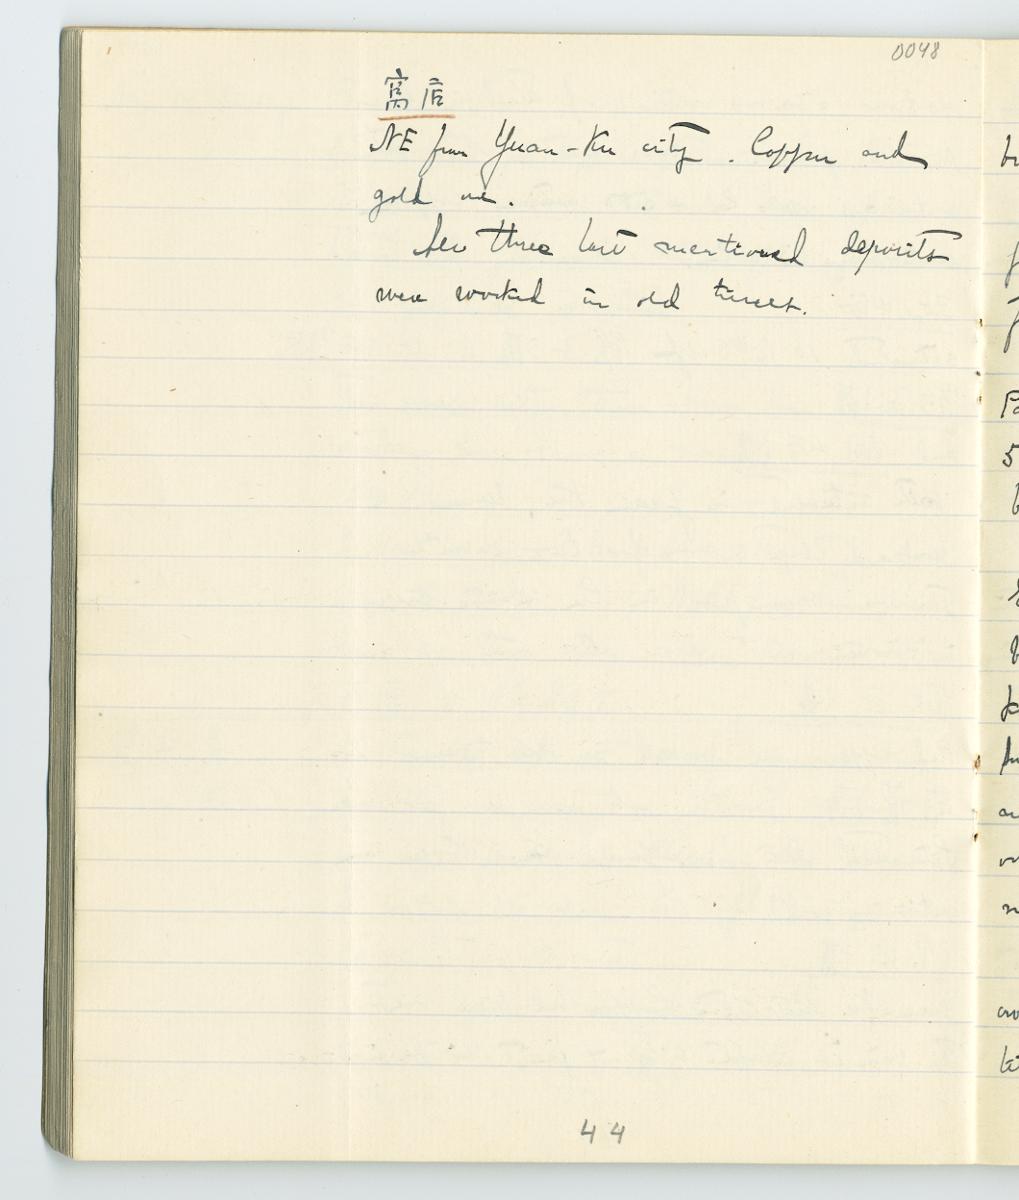 0048
NE from Yuan-Ku city. Copper and
gold ore.
three last mentioned deposits
were worked in old times.
44